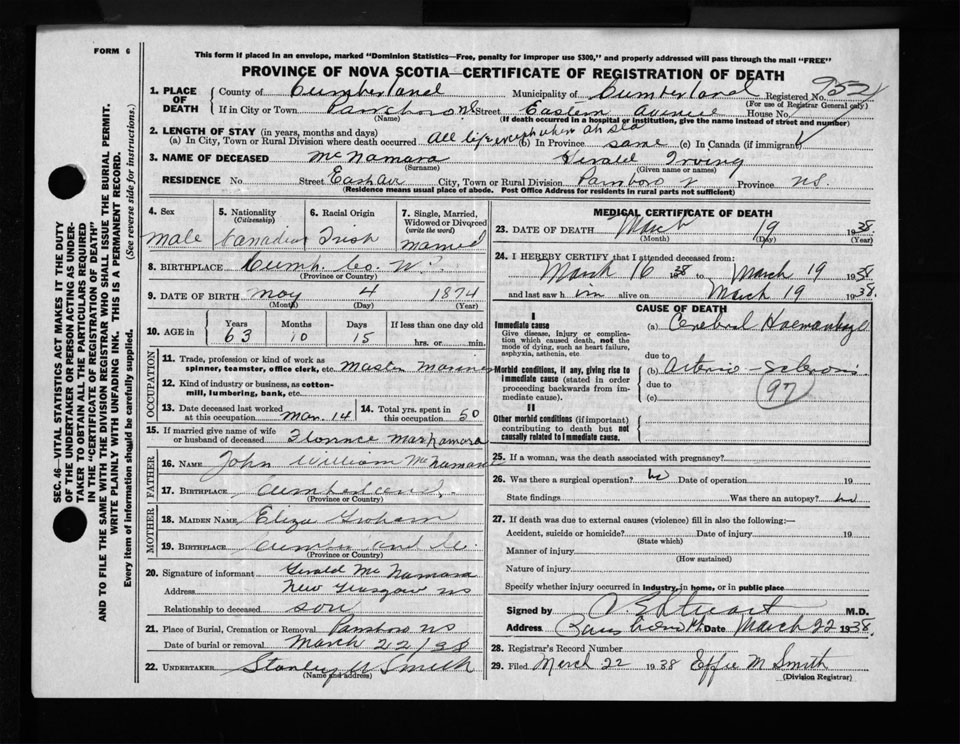 FORM 6
This form if placed in an envelope, marked "Dominion Statistics—Free, penalty for improper use $300," and properly addressed will pass through the mail "FREE"
PROVINCE OF NOVA SCOTIA—CERTIFICATE OF REGISTRATION OF DEATH
SEC. 46—VITAL STATISTICS ACT MAKES IT THE DUTY
OF THE UNDERTAKER OR PERSON ACTING AS UNDER-
TAKER TO OBTAIN ALL THE PARTICULARS REQUIRED
IN THE "CERTIFICATE OF REGISTRATION OF DEATH"
AND TO FILE THE SAME WITH THE DIVISION REGISTRAR WHO SHALL ISSUE THE BURIAL PERMIT.
WRITE PLAINLY WITH UNFADING INK. THIS IS A PERMANENT RECORD.
Every item of information should be carefully supplied. (See reverse side for instructions.)
1. PLACE OF DEATH County of Cumberland Municipality of Cumberland Registered No. 952
(For use of Registrar General only)
If in City or Town Parrsboro NS Street Eastern Avenue House No.
(Name) (If death occurred in a hospital or institution, give the name instead of street and number)
2. LENGTH OF STAY (in years, months and days)
(a) In City, Town or Rural Division where death occurred All life except when at sea (b) In Province same (c) In Canada (if immigrant)
3. NAME OF DECEASED McNamara Gerald Irving
(Surname) (Given name or names)
RESIDENCE No. Street East Ave City, Town or Rural Division Parrsboro Province NS.
(Residence means usual place of abode. Post Office Address for residents in rural parts not sufficient)
4. Sex male
5. Nationality (Citizenship) Canadian
6. Racial Origin Irish
7. Single, Married, Widowed or Divorced (write the word) married
8. BIRTHPLACE Cumb. Co. N.S.
(Province or Country)
9. DATE OF BIRTH May 4 1874
(Month) (Day) (Year)
10. AGE in Years 63 Months 10 Days 15 If less than one day old hrs. or min.
OCCUPATION
11. Trade, profession or kind of work as
spinner, teamster, office clerk, etc. Master Mariner
12. Kind of industry or business, as cotton-
mill, lumbering, bank, etc.
13. Date deceased last worked at this occupation Mar. 14
14. Total yrs. spent in this occupation 50
15. If married give name of wife
or husband of deceased Florence MacNamara
FATHER
16. Name John William McNamara
17. Birthplace Cumberland
(Province or Country)
MOTHER
18. Maiden Name Eliza Graham
19. Birthplace Cumberland Co.
(Province or Country)
20. Signature of informant Gerald McNamara
Address New Glasgow NS
Relationship to deceased son
21. Place of Burial, Cremation or Removal Parrsboro NS
Date of burial or removal March 22/38
22. UNDERTAKER Stanley W Smith
(Name and address)
MEDICAL CERTIFICATE OF DEATH
23. DATE OF DEATH March 19 1938
(Month) (Day) (Year)
24. I HEREBY CERTIFY that I attended deceased from:
March 16 38 to March 19 1938
and last saw h im alive on March 19 1938.
CAUSE OF DEATH
I
Immediate cause (a) Cerebral Haemorrhage
Give disease, injury or complica-
tion which caused death, not the
mode of dying, such as heart failure,
asphyxia, asthenia, etc. due to
Morbid conditions, if any, giving rise to
immediate cause (stated in order
proceeding backwards from im-
mediate cause). (b) Arterio-sclerosis
due to 97
(c)
II
Other morbid conditions (if important)
contributing to death but not
causally related to immediate cause.
25. If a woman, was the death associated with pregnancy?
26. Was there a surgical operation? no Date of operation 19
State findings Was there an autopsy? no
27. If death was due to external causes (violence) fill in also the following:—
Accident, suicide or homicide? Date of injury 19
(State which)
Manner of injury
(How sustained)
Nature of injury
Specify whether injury occurred in industry, in home, or in public place
Signed by Stuart M.D.
Address Parrsboro Date March 22 1938.
28. Registrar's Record Number
29. Filed March 22 1938 Effie M Smith
(Division Registrar)